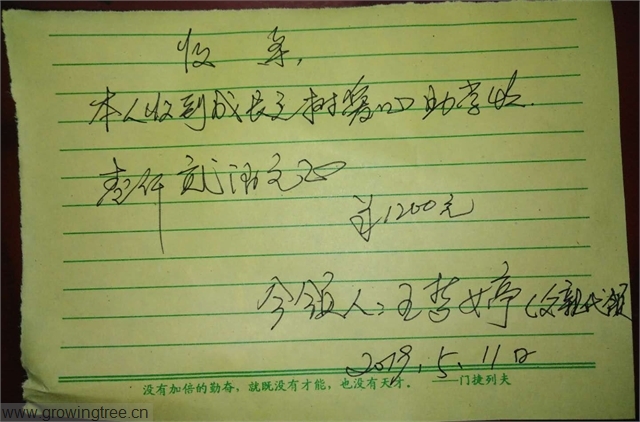 收条,
本人收到成长之树爱心助学
壹仟贰佰元正
1200元
今领人:王哲婷(父亲代领
2019.5.11日
没有加倍的勤奋,就既没有才能,也没有天才。 ——门捷列夫
www.growingtree.cn